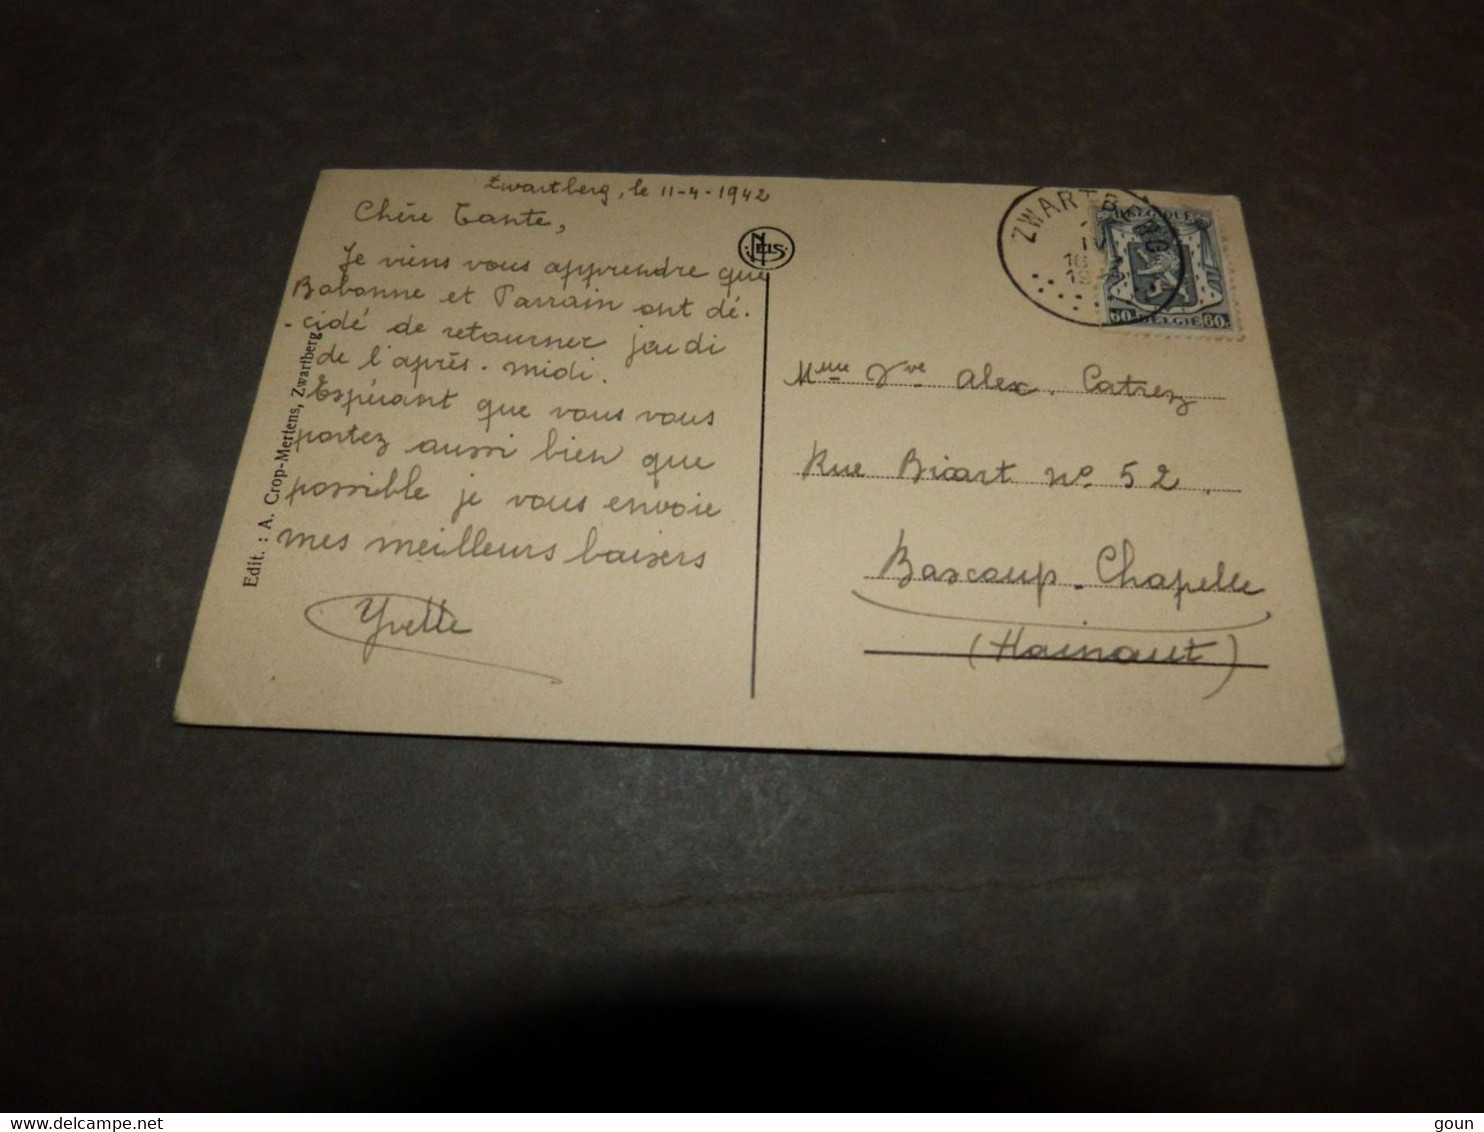 Zwartberg, le 11-4-1942
Chère Tante,
Je viens vous apprendre que
Bobonne et Parrain ont dé-
-cidé de retourner jeudi
de l'après-midi.
Espérant que vous vous
portez aussi bien que
possible je vous envoie
mes meilleurs baisers
Yvette
Edit. : A. Crop-Mertens, Zwartberg
NELS
ZWARTBERG
IV
BELGIQUE
60 BELGIE 60
Mme Vve Alex. Catrez
Rue Bicart n° 52.
Bascoup-Chapelle
(Hainaut)
www.delcampe.net
goun